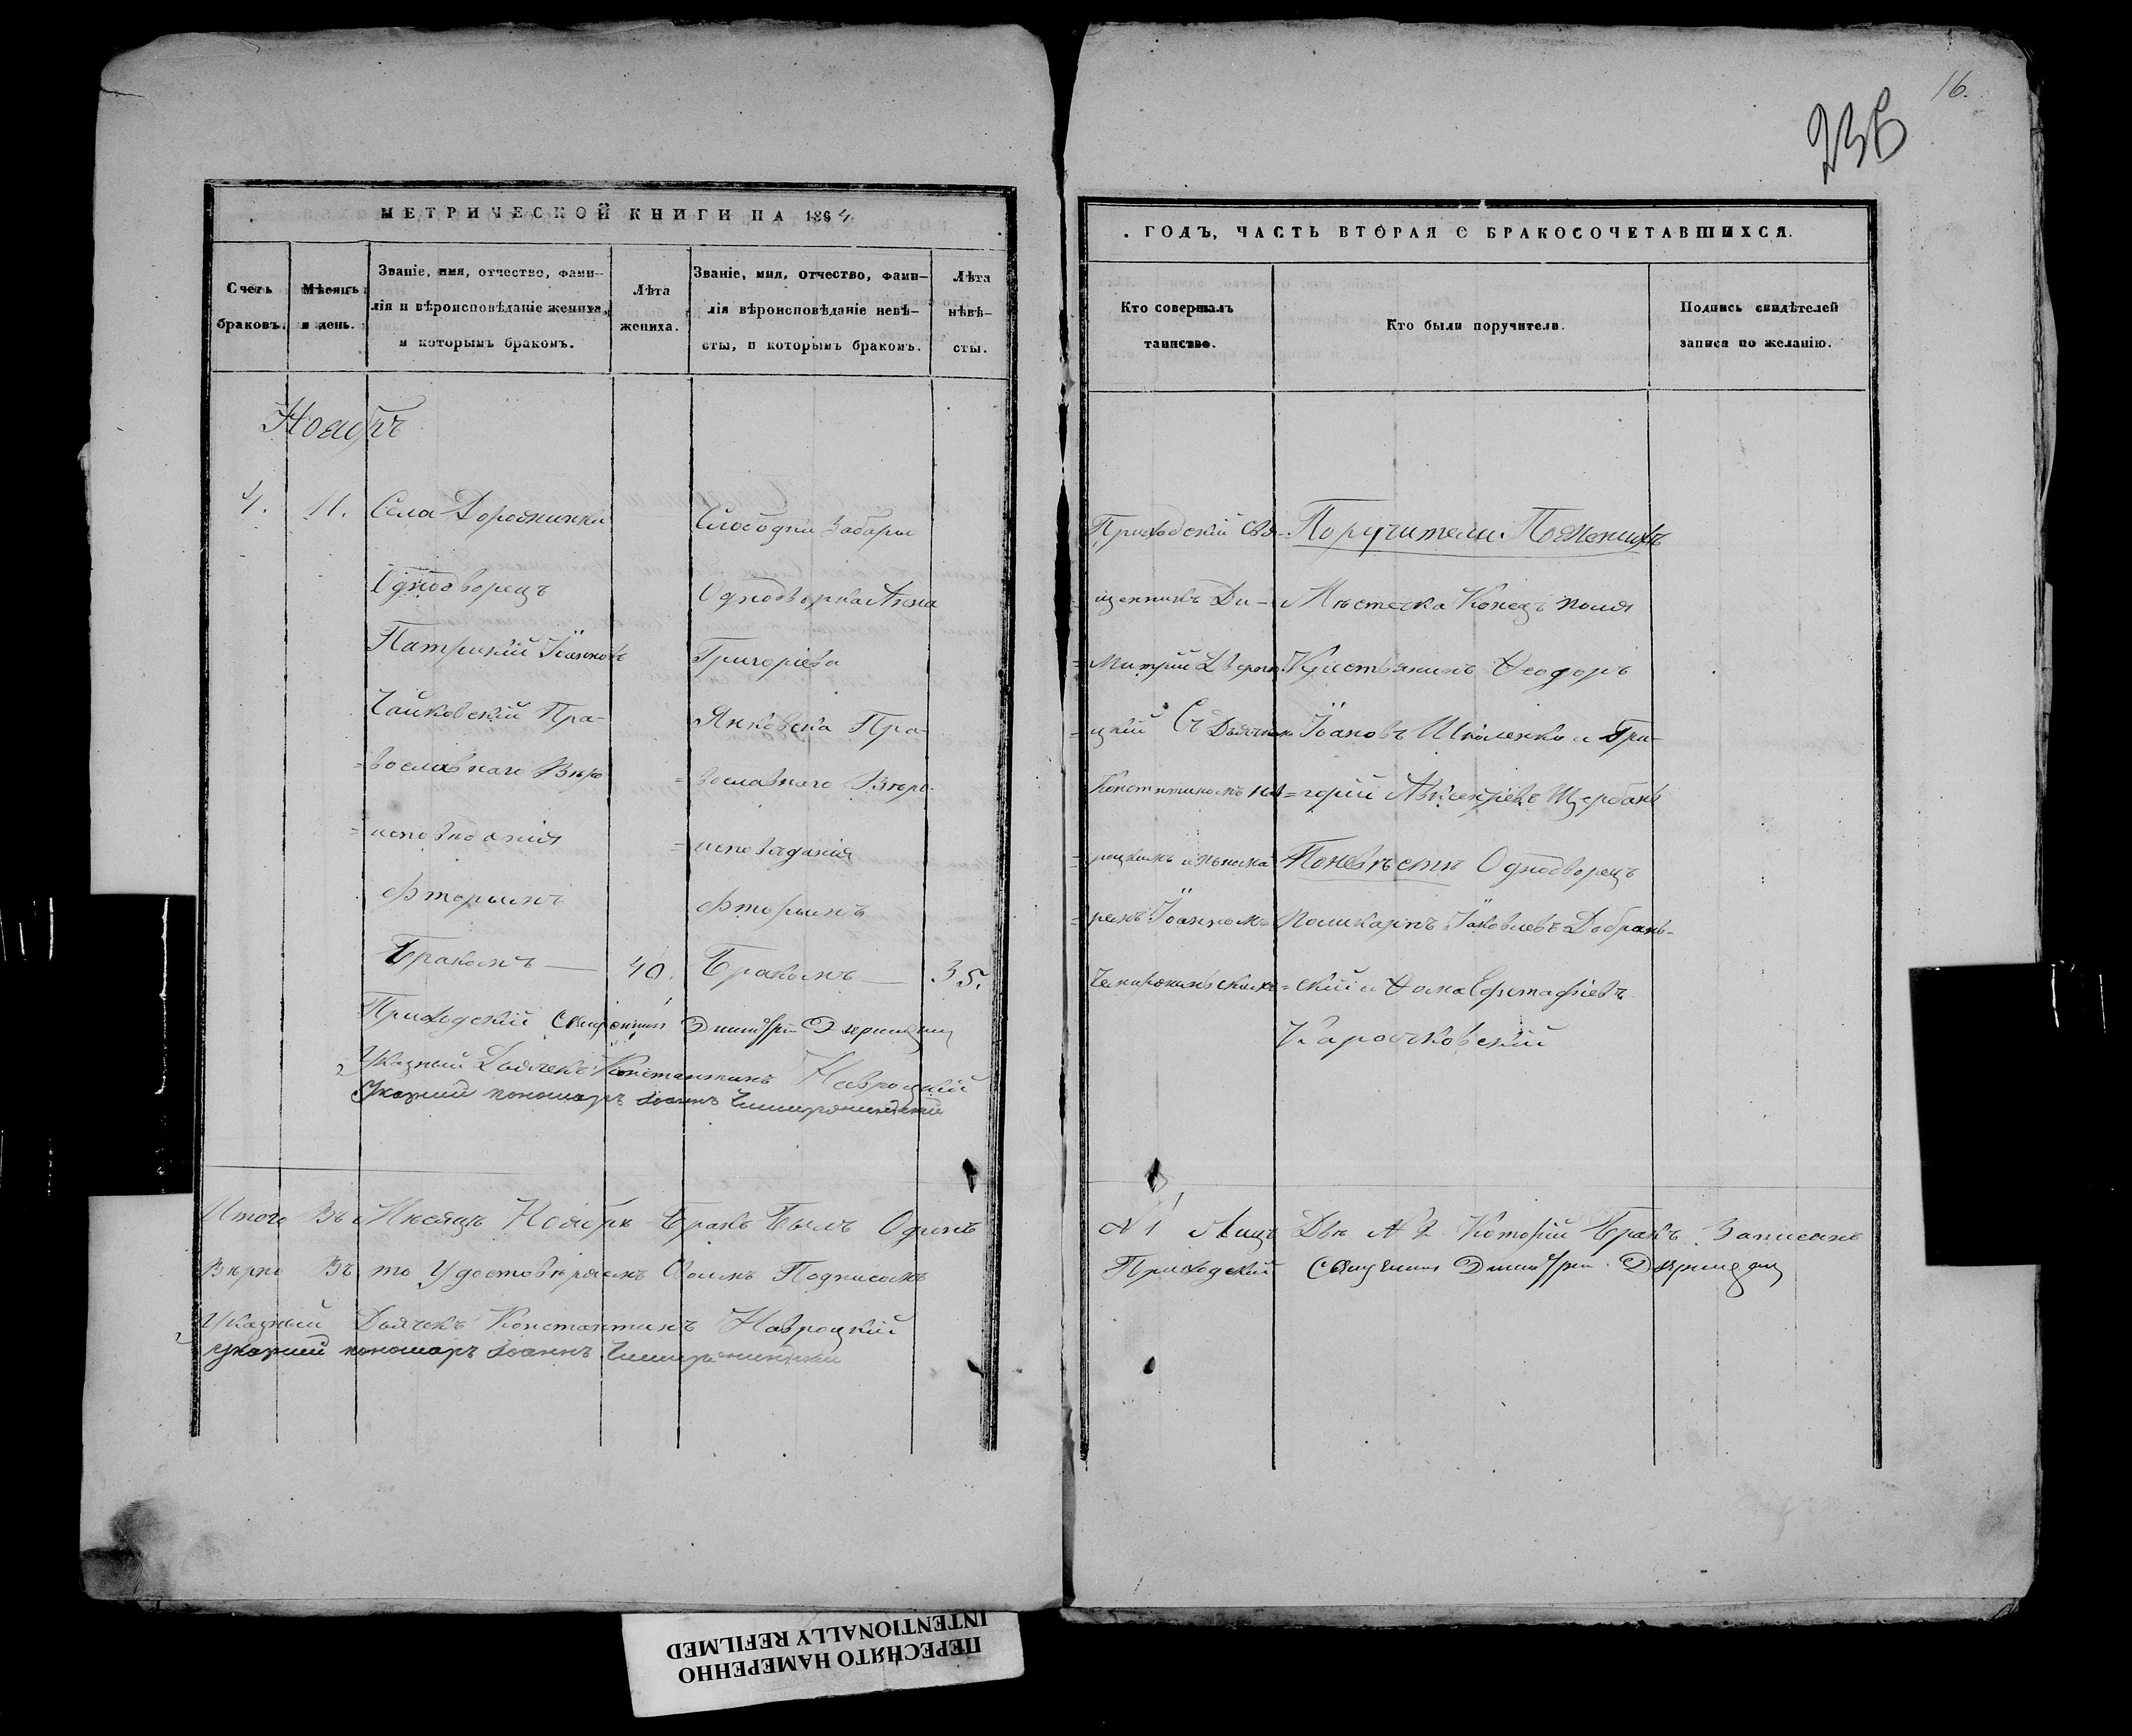 16.
236
МЕТРИЧЕСКОЙ КНИГИ НА 1864
ГОДЪ, ЧАСТЬ ВТОРАЯ О БРАКОСОЧЕТАВШИХСЯ.
Счетъ
браковъ.
Мѣсяцъ
и день.
Званіе, имя, отчество, фами-
лія и вѣроисповѣданіе жениха,
и которымъ бракомъ.
Лѣта
жениха.
Званіе, имя, отчество, фами-
лія вѣроисповѣданіе невѣ-
сты, и которымъ бракомъ.
Лѣта
нѣвѣ-
сты.
Кто совершалъ
таинство.
Кто были поручители.
Подпись свидѣтелей
записи по желанію.
Ноябръ
4.
11.
Села
Однодворецъ
Патрикій Іоанновъ
Чайковскій Пра-
=вославнаго Вѣро
=исповѣданія
фторымъ
Бракомъ —
40.
Слободки Забары
Однодворка Анна
Григоріева
Янковска Пра-
=вославнаго Вѣро-
=исповѣданія
фторымъ
Бракомъ —
35.
Приходскій Свя-
щенникъ Ди-
=митрій
=цкій Съ Дьячкомъ
Константиномъ На
=роцкимъ и понома
=ремъ Іоанномъ
Поручители: По Женихѣ
Мѣстечка Конецъ поля
Крестьянинъ Ѳеодоръ
Іоановъ Школенко и Гри-
=горій Щербань
По невѣстѣ Однодворецъ
Поликарпъ Іаковлевъ Добрань-
=скій и Ѳома Ефстафіевъ
Каросковскій
Приходскій Священникъ Димитрій
Указный Дьячекъ Константинъ Навроцкій
Указный пономарь Іоаннъ
Итого Въ Мѣсяцѣ Ноябрѣ Бракъ Былъ Одинъ
№ 1 Лицъ Двѣ № 2 Который Бракъ Записанъ
Вѣрно Въ то Удостовѣряемъ Своимъ Подписомъ
Приходскій Священникъ Димитрій
Указный Дьячекъ Константинъ Навроцкій
Указный пономарь Іоаннъ
ПЕРЕСНЯТО НАМЕРЕННО
INTENTIONALLY REFILMED